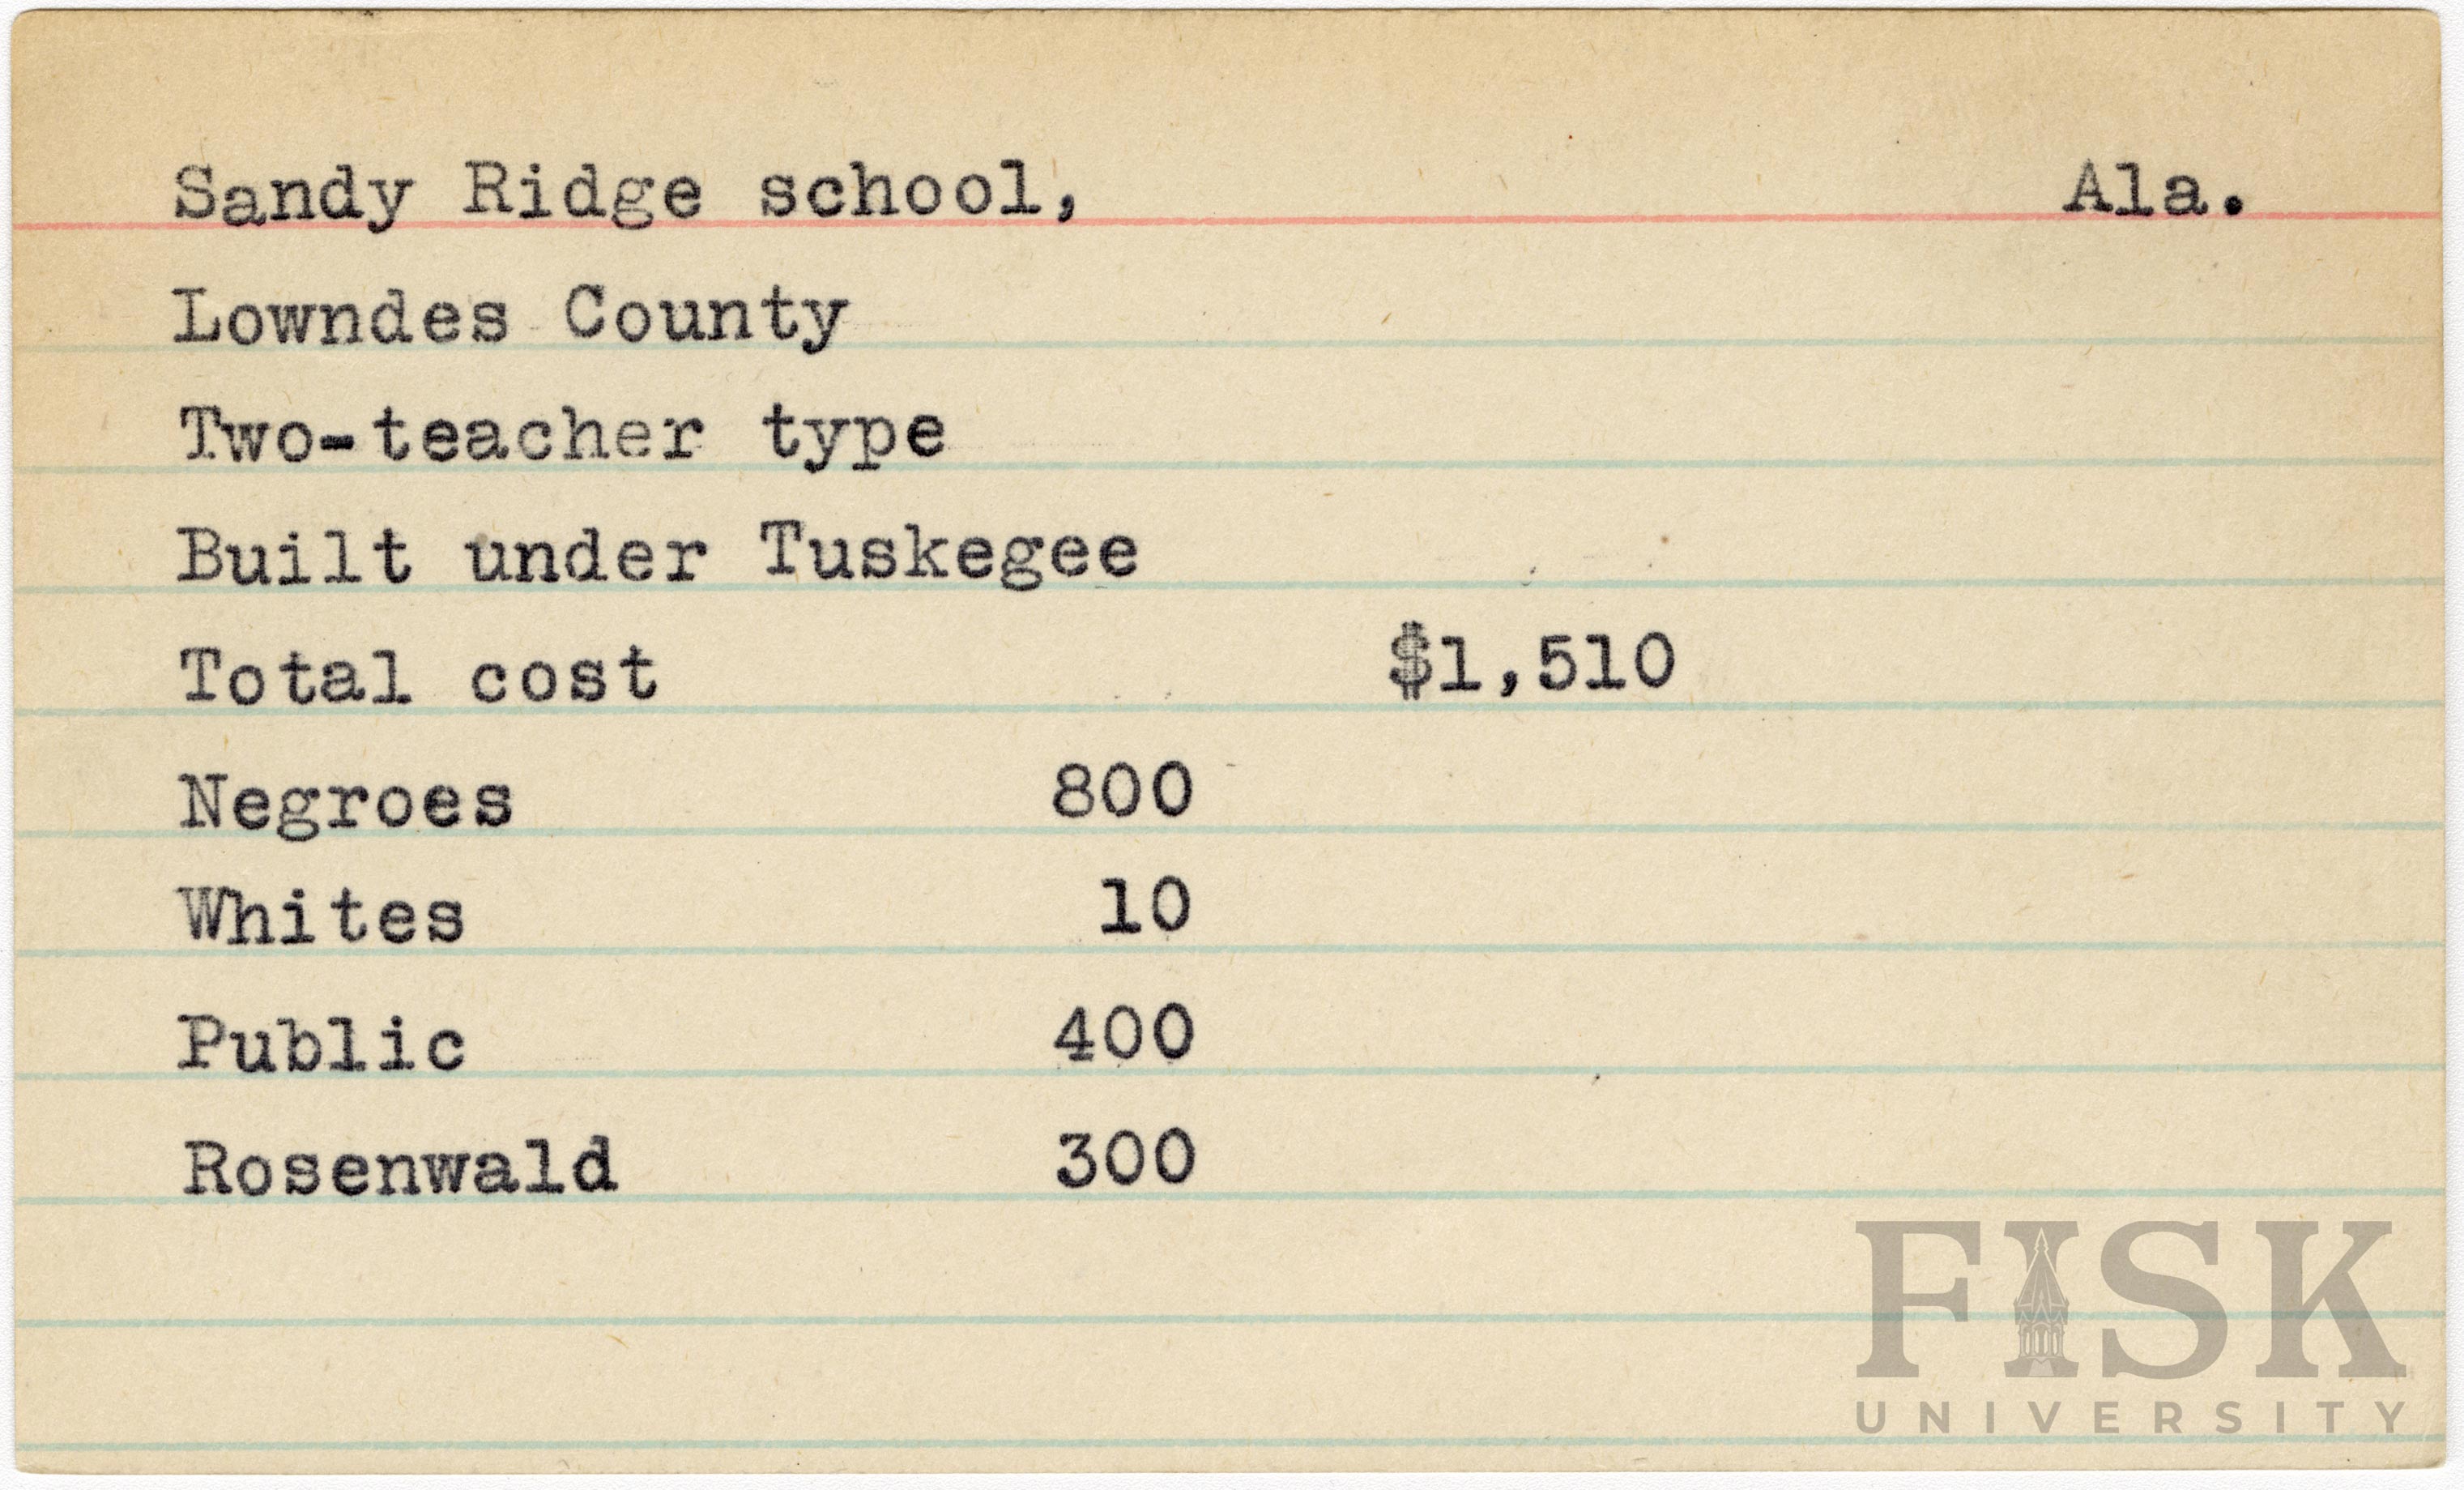 Sandy Ridge school, Ala.
Lowndes County
Two-teacher type
Built under Tuskegee
Total cost $1,510
Negroes 800
Whites 10
Public 400
Rosenwald 300
FISK
UNIVERSITY